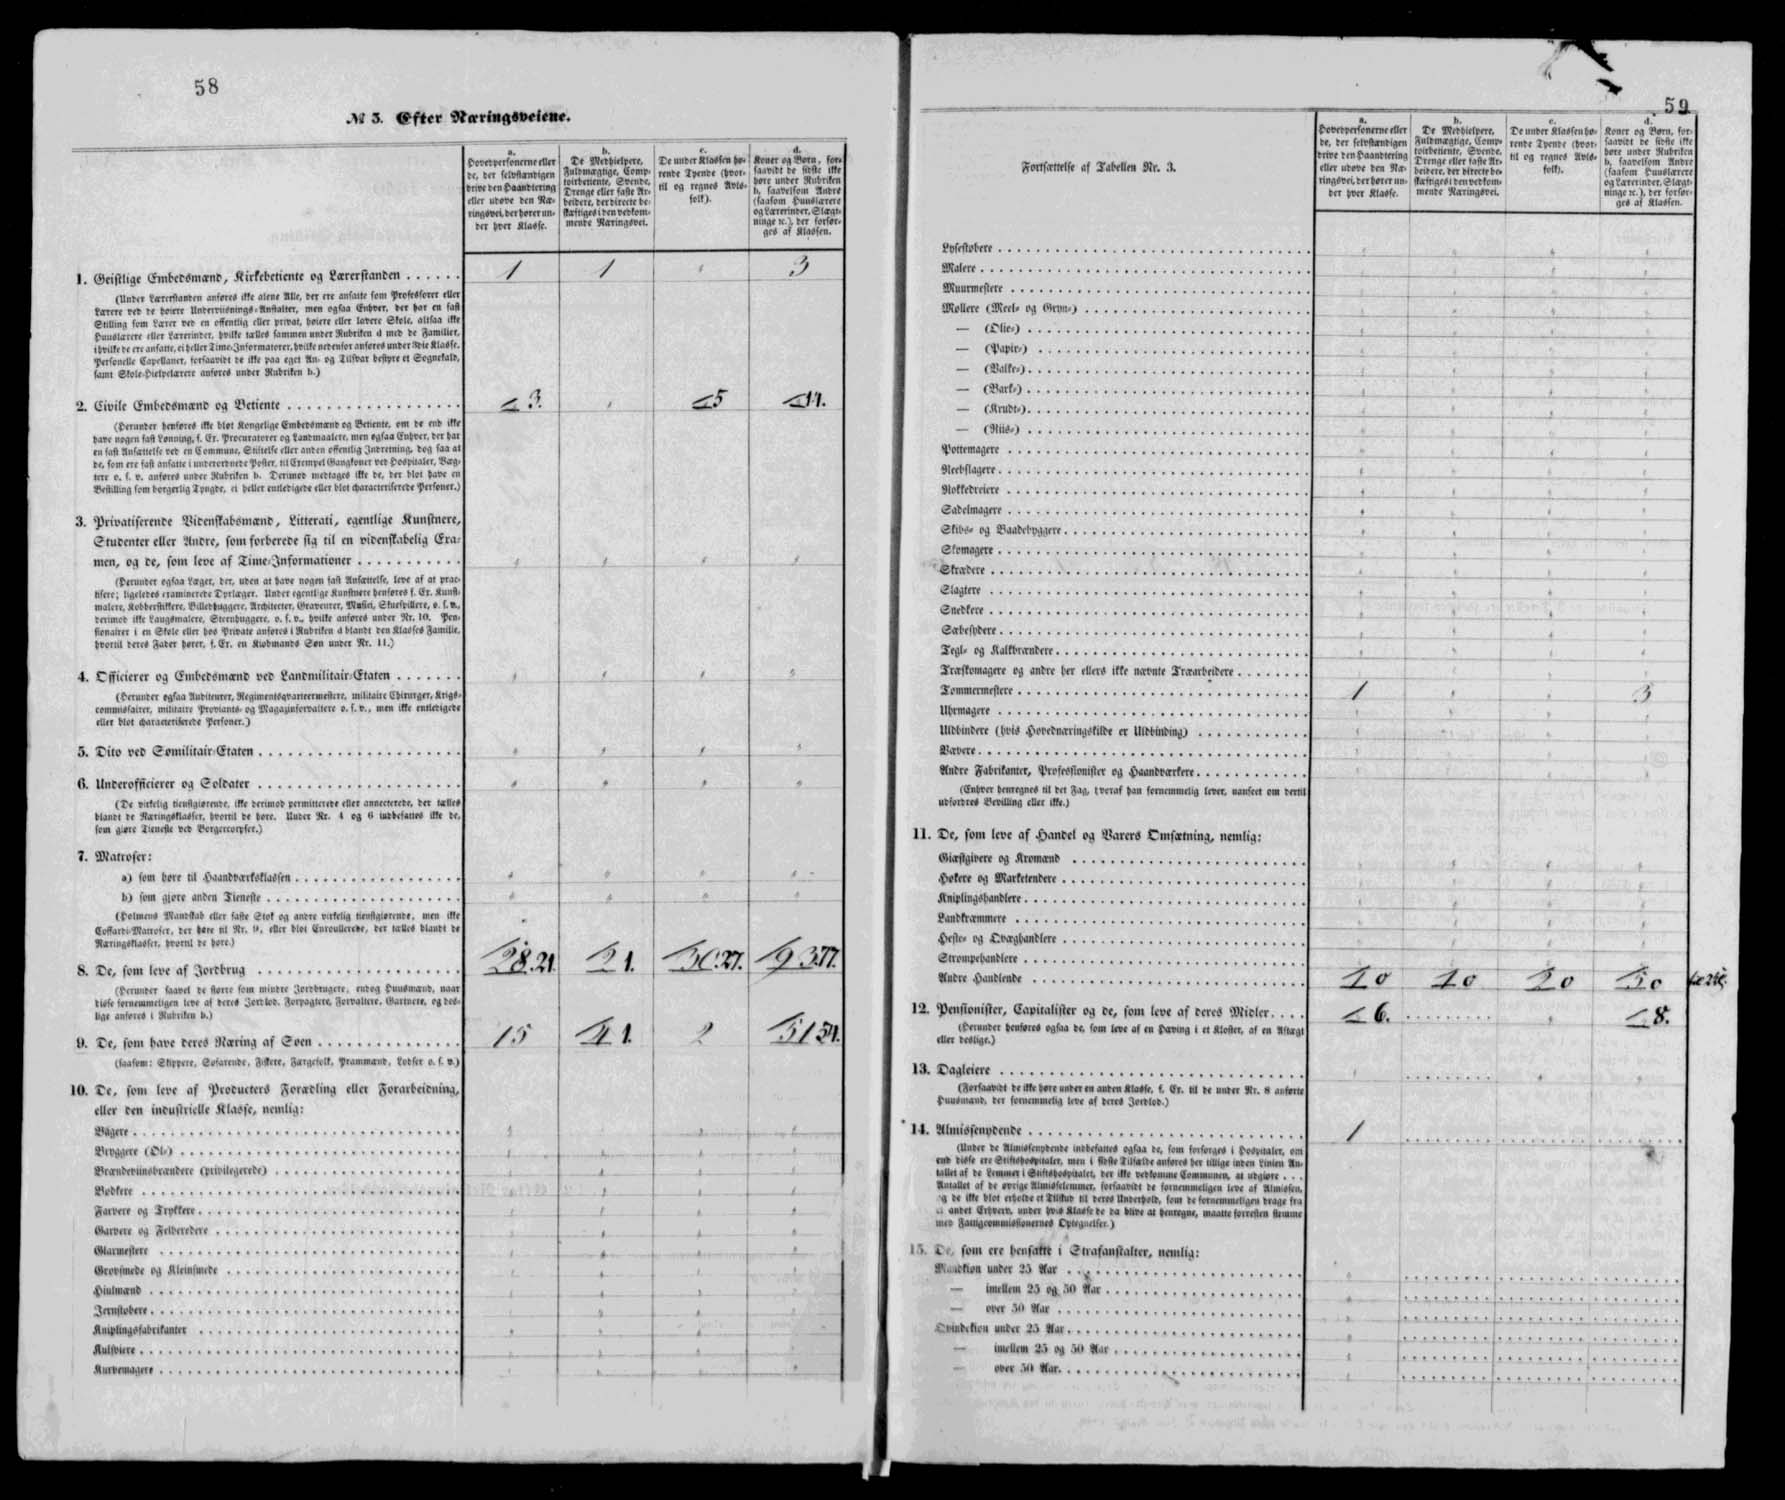 58
№ 3. Efter Næringsveiene.
a.
Hovedpersonerne eller
de, der selvstændigen
drive den Haandtering
eller udøve den Næ-
ringsvei, der hører un-
der hver Klasse.
b.
De Medhielpere,
Fuldmægtige, Comp-
toirbetiente, Svende,
Drenge eller faste Ar-
beidere, der directe be-
skæftiges i den vedkom-
mende Næringsvei.
c.
De under Klassen hø-
rende Tyende (hvor-
til og regnes Avls-
folk).
d.
Koner og Børn, for-
saavidt de sidste ikke
høre under Rubriken
b, saavelsom Andre
(saasom Huuslærere
og Lærerinder, Slægt-
ninge ꝛc.), der forsør-
ges af Klassen.
1. Geistlige Embedsmænd, Kirkebetiente og Lærerstanden . . . . . . 1 1 3
(Under Lærerstanden anføres ikke alene Alle, der ere ansatte som Professorer eller
Lærere ved de høiere Underviisnings-Anstalter, men ogsaa Enhver, der har en fast
Stilling som Lærer ved en offentlig eller privat, høiere eller lavere Skole, altsaa ikke
Huuslærere eller Lærerinder, hvilke tælles sammen under Rubriken d med de Familier,
i hvilke de ere ansatte, ei heller Time-Informatorer, hvilke nedenfor anføres under 3die Klasse.
Personelle Capellaner, forsaavidt de ikke paa eget An- og Tilsvar bestyre et Sognekald,
samt Skole-Hielpelærere anføres under Rubriken b.)
2. Civile Embedsmænd og Betiente . . . . . . 3. 5 14.
(Herunder henføres ikke blot Kongelige Embedsmænd og Betiente, om de end ikke
have nogen fast Lønning, f. Ex. Procuratorer og Landmaalere, men ogsaa Enhver, der har
en fast Ansættelse ved en Commune, Stiftelse eller anden offentlig Indretning, dog saa at
de, som ere fast ansatte i underordnede Poster, til Exempel Gangkoner ved Hospitaler, Væg-
tere o. s. v. anføres under Rubriken b. Derimod medtages ikke de, der blot have en
Bestilling som borgerlig Tyngde, ei heller entledigede eller blot characteriserede Personer.)
3. Privatiserende Videnskabsmænd, Litterati, egentlige Kunstnere,
Studenter eller Andre, som forberede sig til en videnskabelig Exa-
men, og de, som leve af Time-Informationer . . . . . .
(Herunder ogsaa Læger, der, uden at have nogen fast Ansættelse, leve af at prac-
tisere; ligeledes examinerede Dyrlæger. Under egentlige Kunstnere henføres f. Ex. Kunst-
malere, Kobberstikkere, Billedhuggere, Architecter, Graveurer, Musici, Skuespillere, o. s. v.,
derimod ikke Laugsmalere, Steenhuggere, o. s. v., hvilke anføres under Nr. 10. Pen-
sionairer i en Skole eller hos Private anføres i Rubriken d blandt den Klasses Familie,
hvortil deres Fader hører, f. Ex. en Kiøbmands Søn under Nr. 11.)
4. Officierer og Embedsmænd ved Landmilitair-Etaten . . . . . .
(Herunder ogsaa Auditeurer, Regimentsqvarteermestere, militaire Chirurger, Krigs-
commisairer, militaire Proviants- og Magazinforvaltere o. s. v., men ikke entledigede
eller blot characteriserede Personer.)
5. Dito ved Sømilitair-Etaten . . . . . .
6. Underofficierer og Soldater . . . . . .
(De virkelig tienstgiørende, ikke derimod permitterede eller annecterede, der tælles
blandt de Næringsklasser, hvortil de høre. Under Nr. 4 og 6 indbefattes ikke de,
som giøre Tieneste ved Borgercorpser.)
7. Matroser:
a) som høre til Haandværksklassen . . . . . .
b) som gjøre anden Tieneste . . . . . .
(Holmens Mandskab eller faste Stok og andre virkelig tienstgiørende, men ikke
Coffardi-Matroser, der høre til Nr. 9, eller blot Enroullerede, der tælles blandt de
Næringsklasser, hvortil de høre.)
8. De, som leve af Jordbrug . . . . . . 28.21. 21. 30.27. 93.77.
(Herunder saavel de større som mindre Jordbrugere, endog Huusmænd, naar
disse fornemmeligen leve af deres Jordlod. Forpagtere, Forvaltere, Gartnere, og des-
lige anføres i Rubriken b.)
9. De, som have deres Næring af Søen . . . . . . 15 41. 2 51 54.
(saasom: Skippere, Søfarende, Fiskere, Færgefolk, Prammænd, Lodser o. s. v.)
10. De, som leve af Producters Forædling eller Forarbeidning,
eller den industrielle Klasse, nemlig:
Bagere . . . . . .
Bryggere (Øl-) . . . . . .
Brændeviinsbrændere (privilegerede) . . . . . .
Bødkere . . . . . .
Farvere og Trykkere . . . . . .
Garvere og Feldberedere . . . . . .
Glarmestere . . . . . .
Grovsmede og Kleinsmede . . . . . .
Hiulmænd . . . . . .
Jernstøbere . . . . . .
Kniplingsfabrikanter . . . . . .
Kulsviere . . . . . .
Kurvemagere . . . . . .
59
Fortsættelse af Tabellen Nr. 3.
a.
Hovedpersonerne eller
de, der selvstændigen
drive den Haandtering
eller udøve den Næ-
ringsvei, der hører un-
der hver Klasse.
b.
De Medhielpere,
Fuldmægtige, Comp-
toirbetiente, Svende,
Drenge eller faste Ar-
beidere, der directe be-
skæftiges i den vedkom-
mende Næringsvei.
c.
De under Klassen hø-
rende Tyende (hvor-
til og regnes Avls-
folk).
d.
Koner og Børn, for-
saavidt de sidste ikke
høre under Rubriken
b, saavelsom Andre
(saasom Huuslærere
og Lærerinder, Slægt-
ninge ꝛc.), der forsør-
ges af Klassen.
Lysestøbere . . . . . .
Malere . . . . . .
Muurmestere . . . . . .
Møllere (Meel- og Gryn-) . . . . . .
— (Olie-) . . . . . .
— (Papir-) . . . . . .
— (Valke-) . . . . . .
— (Bark-) . . . . . .
— (Krudt-) . . . . . .
— (Riis-) . . . . . .
Pottemagere . . . . . .
Reebslagere . . . . . .
Rokkedreiere . . . . . .
Sadelmagere . . . . . .
Skibs- og Baadebyggere . . . . . .
Skomagere . . . . . .
Skrædere . . . . . .
Slagtere . . . . . .
Snedkere . . . . . .
Sæbesydere . . . . . .
Tegl- og Kalkbrændere . . . . . .
Træskomagere og andre her ellers ikke nævnte Træarbeidere . . . . . .
Tømmermestere . . . . . . 1 3
Uhrmagere . . . . . .
Uldbindere (hvis Hovednæringskilde er Uldbinding) . . . . . .
Vævere . . . . . .
Andre Fabrikanter, Professionister og Haandværkere . . . . . .
(Enhver henregnes til det Fag, hvoraf han fornemmelig lever, uanseet om dertil
udfordres Bevilling eller ikke.)
11. De, som leve af Handel og Varers Omsætning, nemlig:
Giæstgivere og Kromænd . . . . . .
Høkere og Marketendere . . . . . .
Kniplingshandlere . . . . . .
Landkræmmere . . . . . .
Heste- og Qvæghandlere . . . . . .
Strømpehandlere . . . . . .
Andre Handlende . . . . . .
12. Pensionister, Capitalister og de, som leve af deres Midler . . . . 6. 8.
(Herunder henføres ogsaa de, som leve af en Hæving i et Kloster, af en Aftægt
eller deslige.)
13. Dagleiere . . . . . .
(Forsaavidt de ikke høre under en anden Klasse, f. Ex. til de under Nr. 8 anførte
Huusmænd, der fornemmelig leve af deres Jordlod.)
14. Almissenydende . . . . . . 1
(Under de Almissenydende indbefattes ogsaa de, som forsørges i Hospitaler, om
end disse ere Stiftshospitaler, men i sidste Tilfælde anføres her tillige inden Linien An-
tallet af de Lemmer i Stiftshospitalet, der ikke vedkomme Communen, at udgiøre . . .
Antallet af de øvrige Almisselemmer, forsaavidt de fornemmeligen leve af Almissen,
og de ikke blot erholde et Tilskud til deres Underhold, som de fornemmeligen drage fra
et andet Erhverv, under hvis Klasse de da blive at henregne, maatte forresten stemme
med Fattigcommissionernes Optegnelser.)
15. De, som ere hensatte i Strafanstalter, nemlig:
Mandkiøn under 25 Aar . . . . . .
— imellem 25 og 50 Aar . . . . . .
— over 50 Aar . . . . . .
Qvindekiøn under 25 Aar . . . . . .
— imellem 25 og 50 Aar . . . . . .
— over 50 Aar . . . . . .